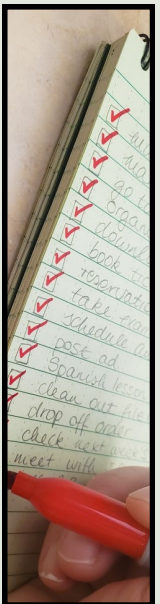 go to
organ
downl
book tr
reservati
take
schedule a
post ad
Spanish lesso
clean out file
drop off order
check next
meet with